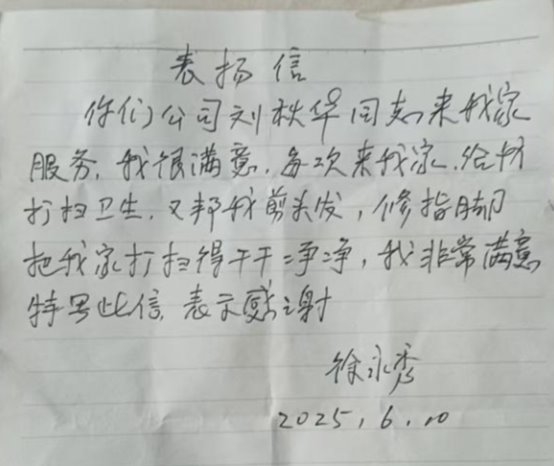 表扬信
你们公司刘秋华同志来我家
服务,我很满意,每次来我家,给我
打扫卫生,又帮我剪头发,修指脚
把我家打扫得干干净净,我非常满意
特写此信,表示感谢
徐永秀
2025,6,10